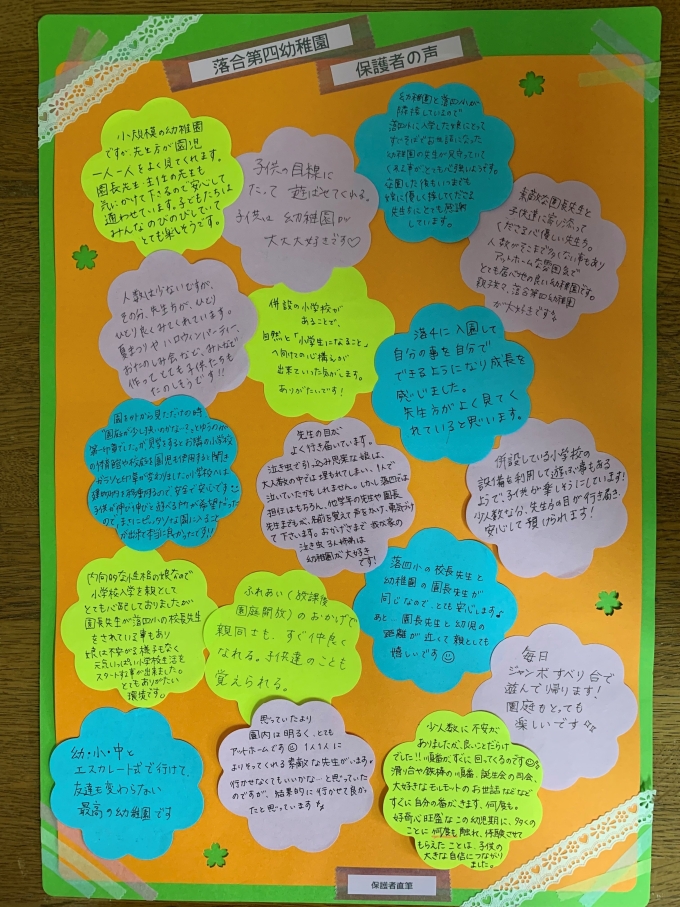 落合第四幼稚園
保護者の声
小規模の幼稚園
ですが、先生方が園児
一人一人をよく見てくれます。
園長先生・主任の先生も
気にかけて下さるので安心して
通わせています。子どもたちは
みんなのびのびしていて
とても楽しそうです。
子供の目線に
たって 遊ばせてくれる。
子供は 幼稚園が
大大大好きです♡
幼稚園と落四小が
隣接しているので
落四小に入学した娘にとって
すぐそばでお世話になった
幼稚園の先生が見守っていて
くれる事がとっても心強いようです。
卒園した後もいつまでも
娘に優しく接してくださる
先生方にとても感謝
しています。
素敵な園長先生と
子供達に寄り添って
くださる心優しい先生方。
人数がそこまで多くない事もあり
アットホームな雰囲気で
とても居心地の良い幼稚園です。
親子で、落合第四幼稚園
が大好きです♪
人数は少ないですが、
その分、先生方が、ひとり
ひとり良くみてくれています。
夏まつりや ハロウィンパーティー、
おたのしみ会など、みんなで
作って とても子供たちも
たのしそうです!!
併設の小学校が
あることで、
自然と「小学生になること」
へ向けての心構えが
出来ていった気がします。
ありがたいです!
落4に入園して
自分の事を自分で
できるようになり成長を
感じました。
先生方がよく見てく
れていると思います。
園を外から見ただけの時
"園庭が少し狭いのかな…"とゆうのが
第一印象でしたが、見学をするとお隣の小学校
の体育館や校庭を園児も使用すると聞き
ガラリと印象が変わりました。小学校へは
建物内を移動するので、安全で安心です
子供が伸び伸びと遊べる所が希望だった
ので、まさにピッタリな園に入ること
が出来て本当に良かったです!
先生の目が
よく行き届いています。
泣き虫で引っ込み思案な娘は、
大人数の中では埋もれてしまい、1人で
泣いていたかもしれません。しかし落四では
担任はもちろん、他学年の先生や園長
先生までもが、名前を覚えて声をかけ、勇気づけ
て下さいます。おかげさまで 我が家の
泣き虫さん姉弟は
幼稚園が大好き
です!
併設している小学校の
設備を利用して遊ぶ事もある
ようで、子供が楽しそうにしています!
少人数な分、先生方の目が行き届き、
安心して預けられます!
内向的な性格の娘なので
小学校入学を親として
とても心配しておりましたが
園長先生が落四小の校長先生
をされている事もあり
娘は不安がる様子もなく
元気いっぱいに小学校生活を
スタートする事が出来ました。
とてもありがたい
環境です。
ふれあい(放課後
園庭開放)のおかげで
親同士も、すぐ仲良く
なれる。子供達のことも
覚えられる。
落四小の校長先生と
幼稚園の園長先生が
同じなので、とても安心します♪
あと…園長先生と幼児の
距離が近くて親としても
嬉しいです☺
毎日
ジャンボすべり台で
遊んで帰ります!
園庭もとっても
楽しいです♪
幼・小・中と
エスカレート式で行けて、
友達も変わらない
最高の幼稚園です
思っていたより
園内は明るく、とても
アットホームです☺ 1人1人に
よりそってくれる素敵な先生がいます♪
行かせなくてもいいかな…と思っていた
のですが、結果的に行かせて良かっ
たと思っています♪
少人数に不安が
ありましたが、良いことだらけ
でした!!順番がすぐに回ってくるのです☺
滑り台や鉄棒の順番、誕生会の司会、
大好きなモルモットのお世話などなど
すぐに自分の番がきます、何度も。
好奇心旺盛なこの幼児期に、多くの
ことに何度も触れ、体験させて
もらえたことは、子供の
大きな自信につながり
ました。
保護者直筆